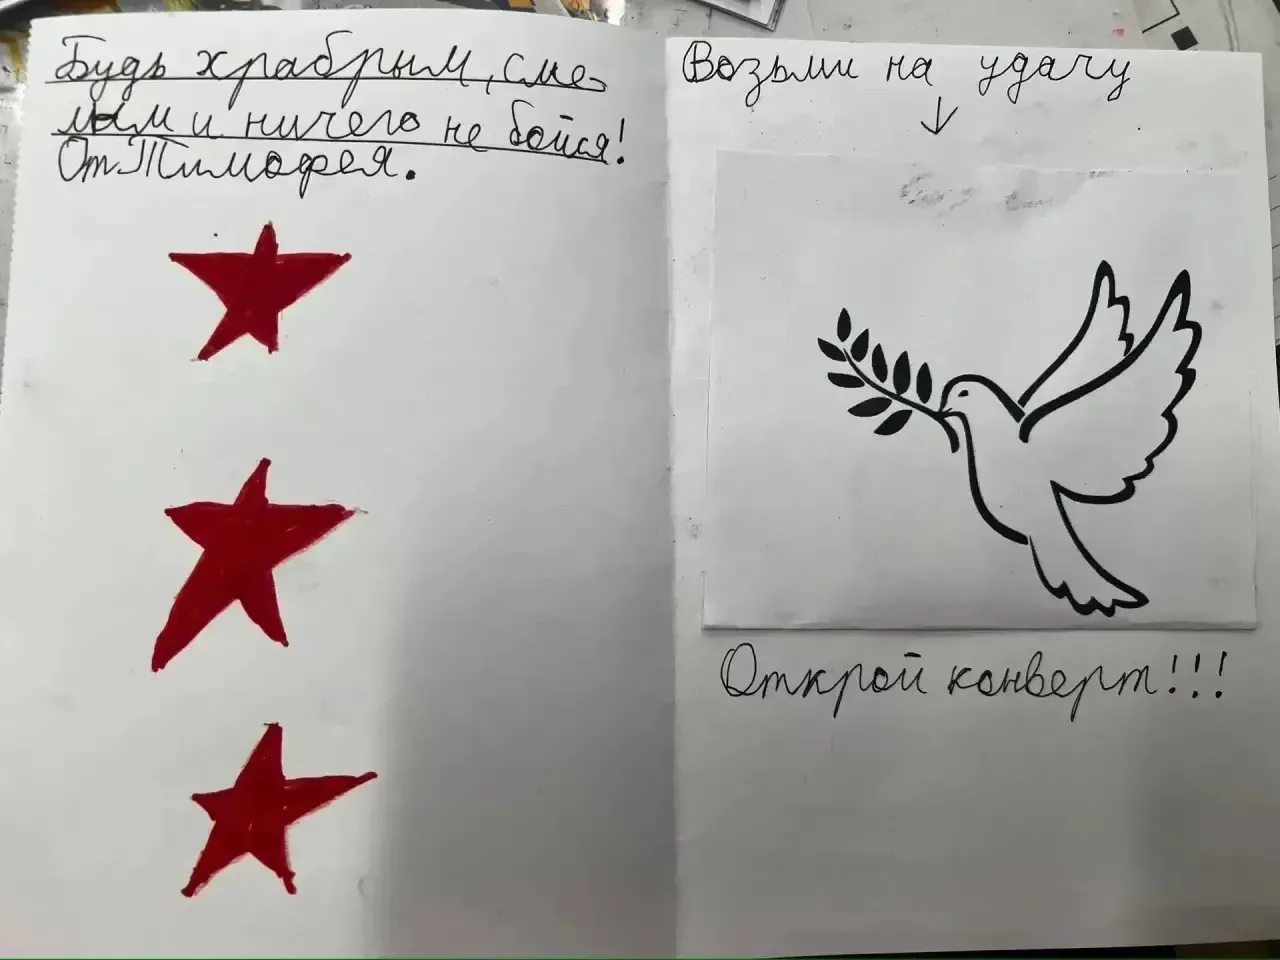 Будь храбрым, сме-
лым и ничего не бойся!
От Тимофея.
Возьми на удачу
Открой конверт!!!